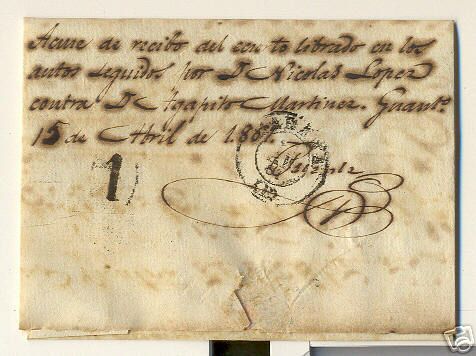 Acuse de recibo del librado en los
autos seguidos por Dn Nicolas Lopez
contra Dn Agapito Martinez. Guant.o
15 de Abril de
1
ebay